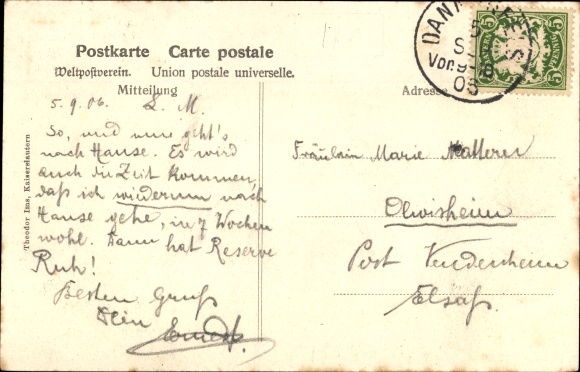 Postkarte Carte postale
Weltpostverein. Union postale universelle.
Mitteilung
Adresse
5.9.06. L. M.
So, und nun geht's
nach Hause. Es wird
auch die Zeit kommen,
daß ich wiederum nach
Hause gehe, in 7 Wochen
wohl. Dann hat Reserve
Ruh!
Besten Gruß
Dein Ernest
Theodor Ims, Kaiserslautern
Fräulein Marie
Olwisheim
Post Vendenheim
Elsaß
5 5
5 5
Vor. 9-